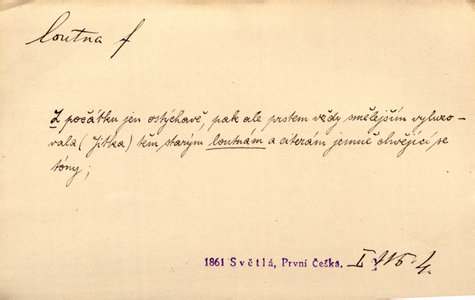 loutna f
Z počátku jen ostýchavě, pak ale prstem vždy smělejším vyluzo-
vala (Jitka) těm starým loutnám a citerám jemně chvějící se
tóny;
1861 Světlá, První Češka, I